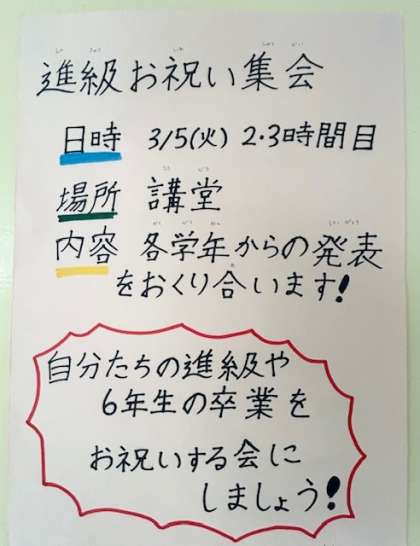 進級お祝い集会
日時 3/5(火) 2・3時間目
場所 講堂
内容 各学年からの発表
をおくり合います!
自分たちの進級や
6年生の卒業を
お祝いする会に
しましょう!